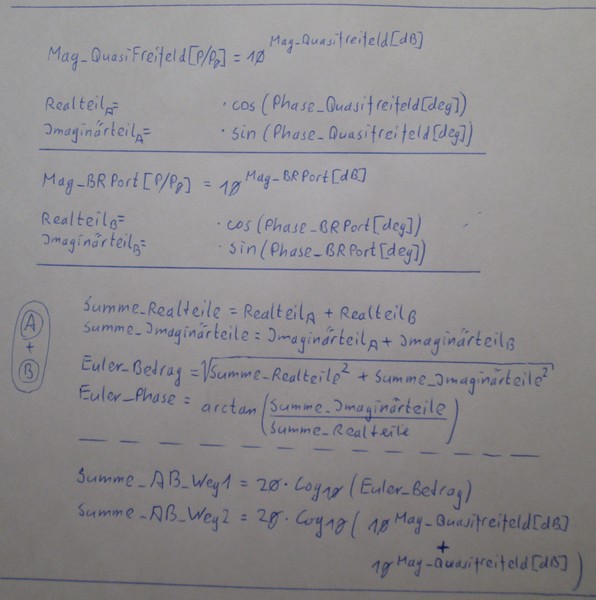 Mag_QuasiFreifeld[P/P0] = 10^Mag_Quasifreifeld[dB]
Realteil_A= · cos(Phase_Quasifreifeld[deg])
Imaginärteil_A= · sin(Phase_Quasifreifeld[deg])
Mag_BRPort[P/P0] = 10^Mag_BRPort[dB]
Realteil_B= · cos(Phase_BRPort[deg])
Imaginärteil_B= · sin(Phase_BRPort[deg])
A + B
Summe_Realteile = Realteil_A + Realteil_B
Summe_Imaginärteile = Imaginärteil_A + Imaginärteil_B
Euler_Betrag = √(Summe_Realteile² + Summe_Imaginärteile²)
Euler_Phase = arctan(Summe_Imaginärteile / Summe_Realteile)
Summe_AB_Weg1 = 20 · Log10 (Euler_Betrag)
Summe_AB_Weg2 = 20 · Log10 (10^Mag_Quasifreifeld[dB]
+
10^Mag_Quasifreifeld[dB])